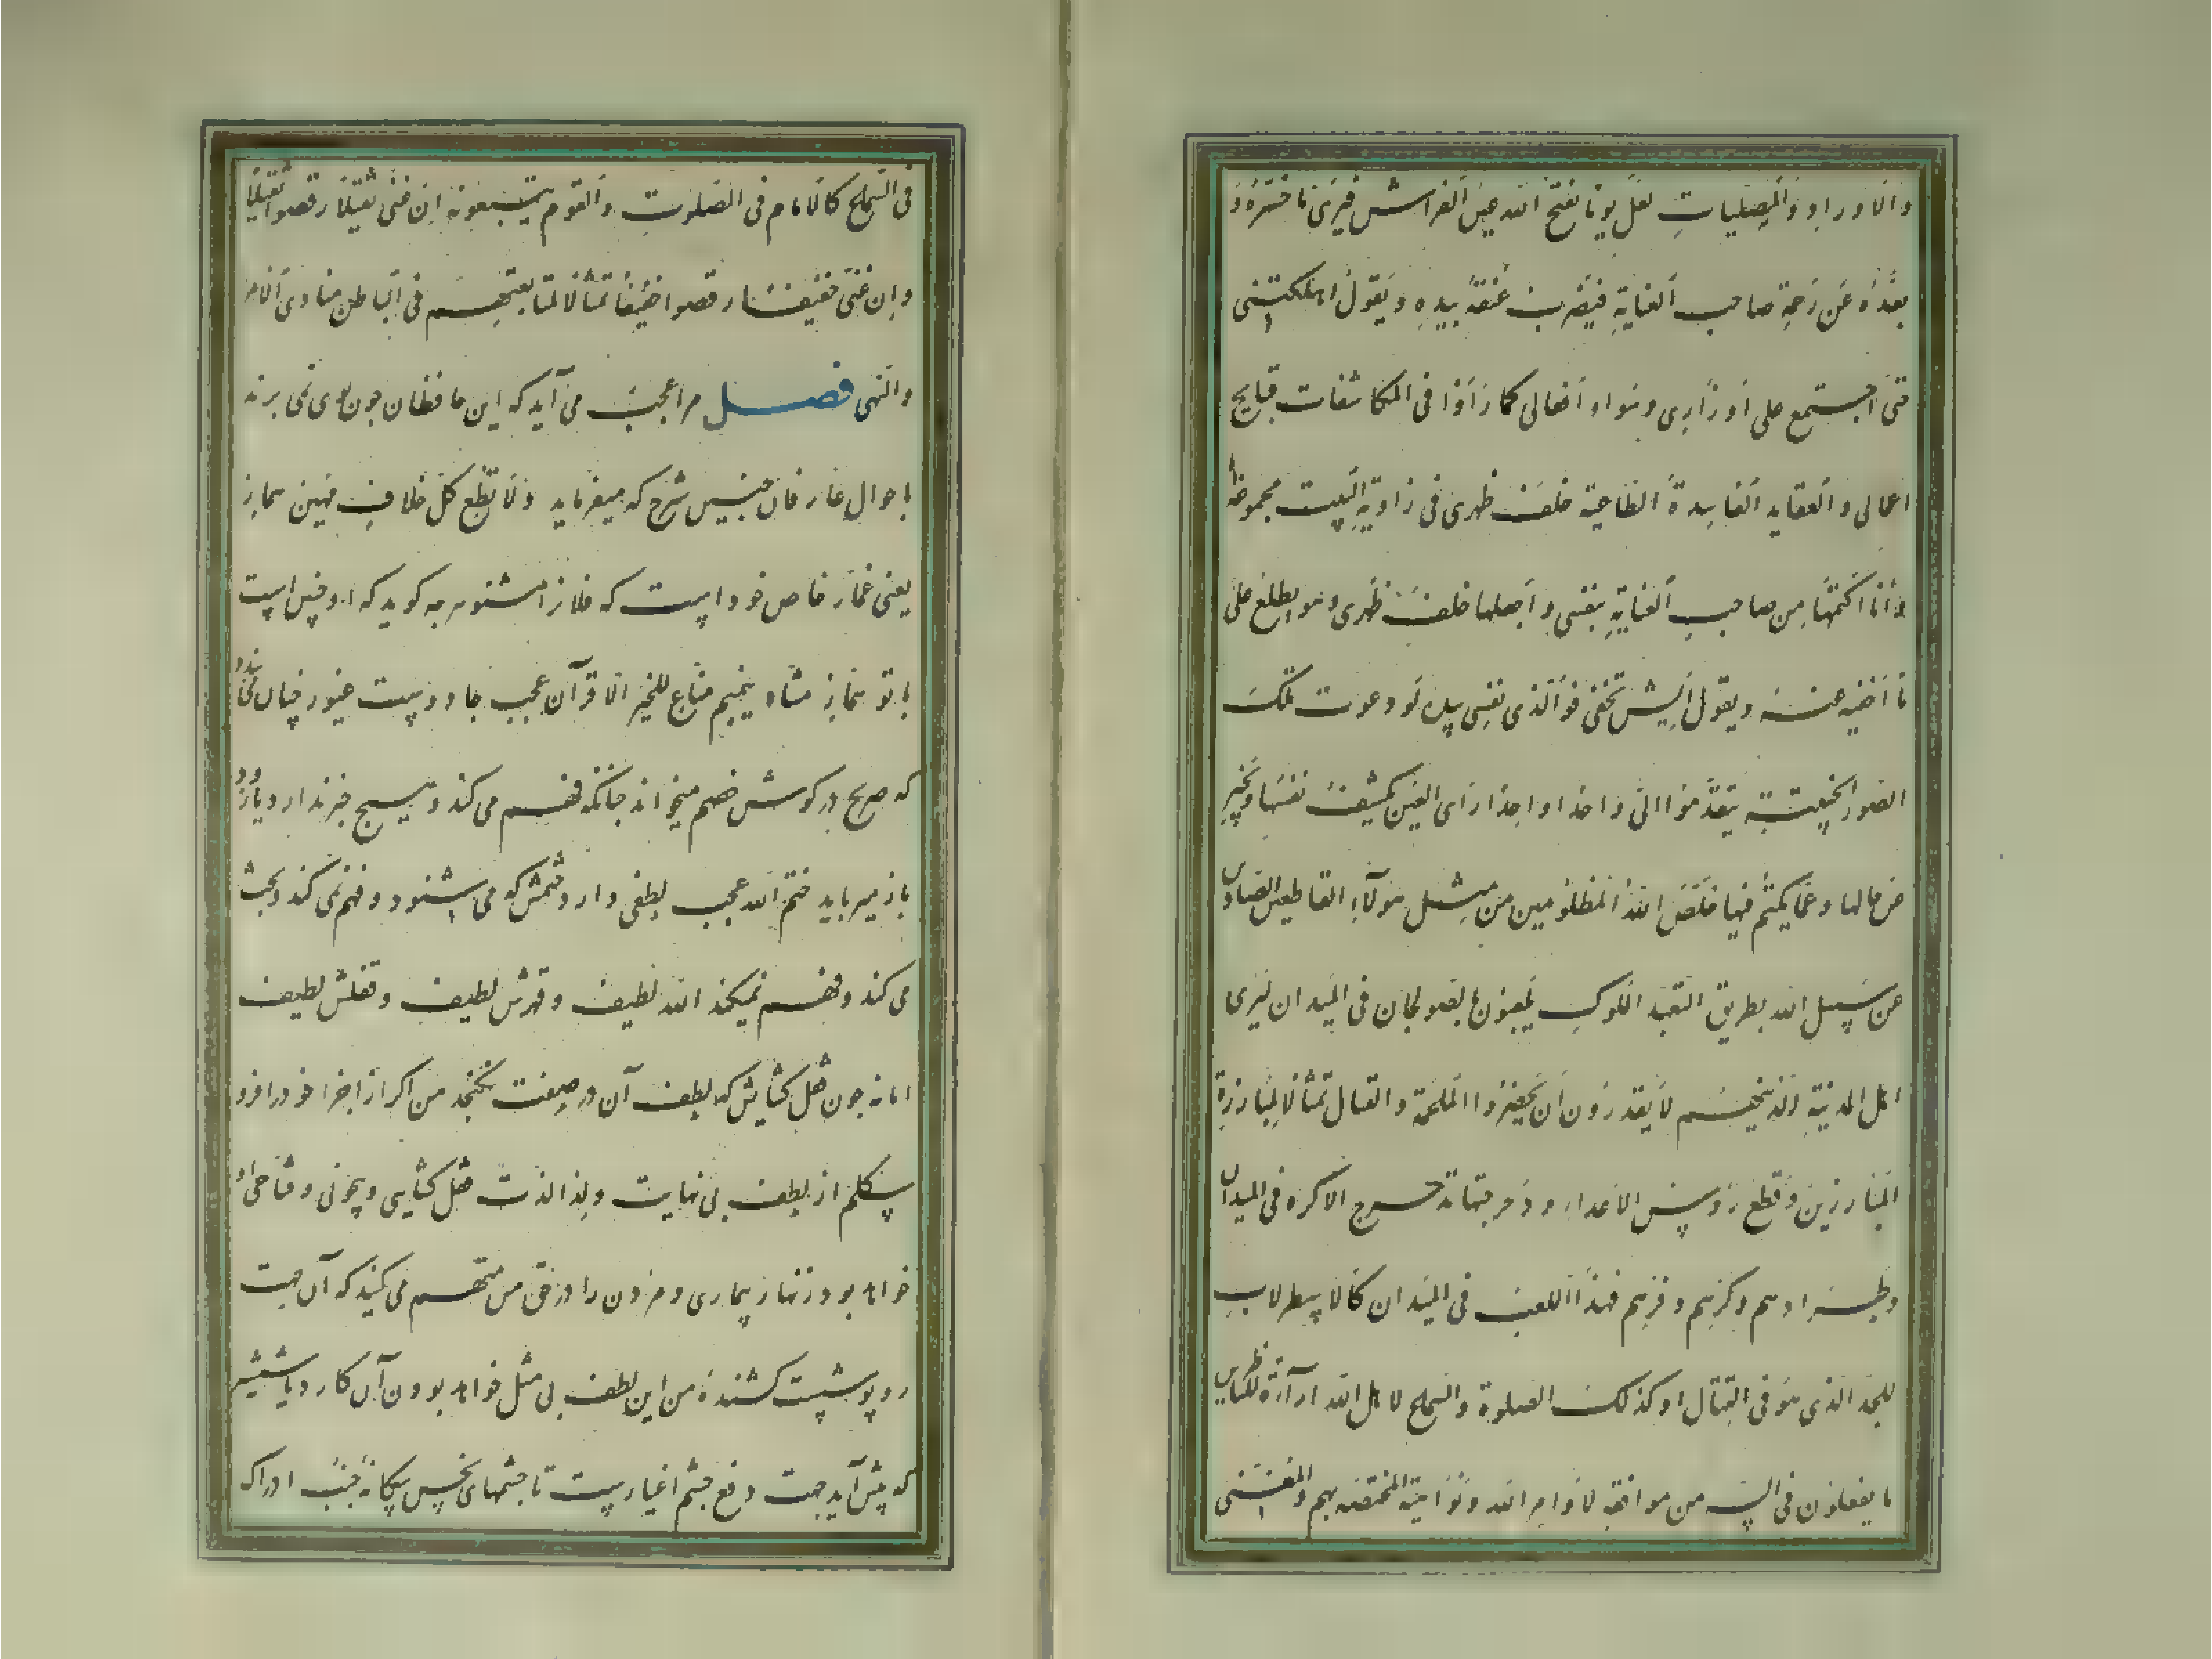 والاوراد والمصلیات لعل یوما یفتح الله عین الفراش فیری ما خسره و
بعده عن زحمة صاحب العنایة فیضرب عنقه بیده ویقول اهلکتنی
حتی اجتمع علی اوزاری وسواد افعالی کما رأوا فی المکاشفات قبایح
اعمالی والعقاید الفاسدة الظاهرة خلف ظهری فی زاویة البیت مجموعة
وانا اکتمها من صاحب العنایة بنفسی واجعلها خلف ظهری وهو یطلع علی
ما اخفیه عنه ویقول ایش تخفی فوالذی نفسی بیده لو دعوت تلک
الصور الخبیثة یتقدموا الی واحدا واحدا رأی العین یکشف نفسها ویخبر
عن حالها وعما یکتم فیها خلص الله المظلومین من مثل هولآء القاطعین الصادین
عن سبیل الله بطریق التعبد الملوک یلعبون بالصولجان فی المیدان لیری
اهل المدینة الذین هم لا یقدرون ان یحضروا الملحمة والقتال تمثالا لمبارزة
المبارزین وقطع رؤس الاعداء ودحرجتها تدحرج الاکره فی المیدان
وطرادهم وکرهم وفرهم فهذا اللعب فی المیدان کالاسطرلاب
للجد الذی هو فی القتال وکذلک الصلوة والسماع لاهل الله ارآءة للناظرین
ما یفعلون فی السر من موافقة لاوامر الله ونواهیه المختصة بهم والمغنی
فی السماع کالامام فی الصلوت والقوم یتبعونه ان غنی ثقیلا رقصوا ثقیلا
وان غنی خفیفا رقصوا خفیفا تمثالا لمتابعتهم فی الباطن منادی الامر
والنهی فصل مرا عجب می آید که این حافظان چون پی نمی برند
باحوال عارفان چنین شرح که میفرماید ولا تطع کل حلاف مهین هماز
یعنی غماز خاص خود است که فلان را مشنو هرچه گوید که او چنین است
با تو هماز مشاء بنمیم مناع للخیر الا قرآن عجب جادوست غیور چنان می بندد
که صریح در گوش خصم میخواند چنانکه فهم می کند و هیچ خبر ندارد و باز
باز میرباید ختم الله عجب لطفی دارد ختمش که می شنود و فهم نمی کند و بحث
می کند و فهم نمیکند الله لطیف و قهرش لطیف و قفلش لطیف
اما نه چون قفل گشایش که لطف آن در صفت نگنجد من اگر از اجزا خود را فرو
سکلم از لطف بی نهایت و لذا لذت قفل گشایی و بیچونی و فتاحی او
خواهد بود زنهار بیماری و مردن را در حق من متهم می کنید که آن جهت
روپوشست کشندهٔ من این لطف بی مثلی خواهد بودن آن کارد یا شمشیر
که پیش آید جهت دفع چشم اغیارست تا چشمهای نحس بیگانهٔ جنب ادراک